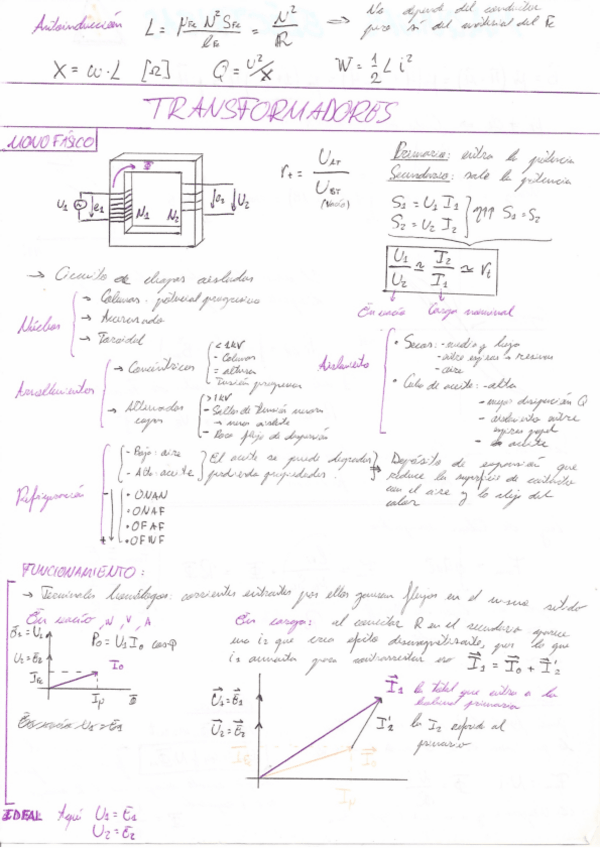 Autoinducción L = μFe N² SFe / lFe = N² / R ⇒ No depende del conductor
pero sí del material del Fe
X = ω · L [Ω] Q = U²/X W = 1/2 L i²
TRANSFORMADORES
MONOFÁSICO
U1 e1 N1 N2 e2 U2
rt = UAT / UBT
(Vacío)
Primario: entra la potencia
Secundario: sale la potencia
S1 = U1 I1
S2 = U2 I2 } η↑↑ S1 = S2
U1/U2 ≃ I2/I1 ≃ rt
En vacío Carga nominal
→ Circuito de chapas aisladas
Núcleos
→ Columnas: potencial progresivo
→ Acorazado
→ Toroidal
Arrollamientos
→ Concéntricos
< 1 kV
- Columnas
= altura
Tensión progresiva
→ Alternados
> 1 kV
→ menos aislante
- Poco flujo de dispersión
Aislamiento
• Secos: - media y baja
- entre espiras → resinas
- aire
• Cuba de aceite: - alta
- mejor disipación Q
- aislamiento entre
espiras papel
- aceite
Refrigeración
- Baja: aire
- Alta: aceite
El aceite se puede degradar
perdiendo propiedades.
→ Depósito de expansión que
reduce la superficie de contacto
con el aire y lo aleja del
calor
• ONAN
• ONAF
• OFAF
• OFWF
FUNCIONAMIENTO:
→ Terminales homólogos: corrientes entrantes por ellos generan flujos en el mismo sentido
En vacío, W, V, A
E1 = U1
P0 = U1 I0 cosφ
U2 = E2
IFe
I0
Iμ Φ
En carga: al conectar R en el secundario aparece
una i2 que crea efecto desmagnetizante, por lo que
i1 aumenta para contrarrestar eso I1 = I0 + I2'
U1 = E1
U2 = E2
I1 la total que entra a la
bobina primaria
I2' la I2 referida al
primario
I0
Iμ
IDEAL Aquí U1 = E1
U2 = E2